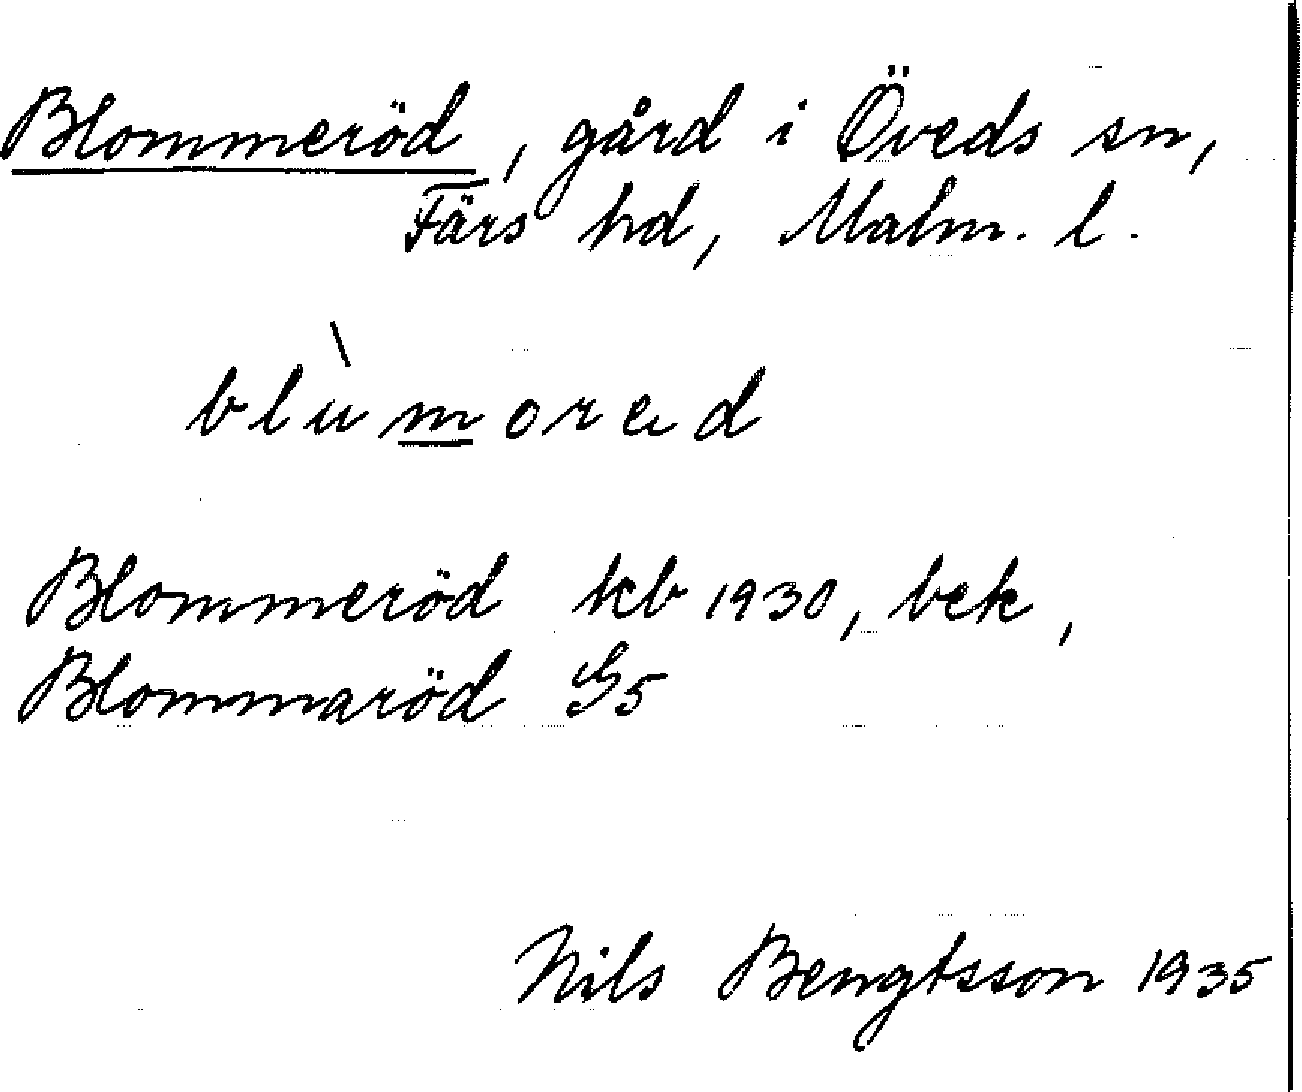 Blommeröd, gård i Öveds sn,
Färs hd, Malm. l.
blùmored
Blommeröd kb 1930, bek,
Blommaröd G5
Nils Bengtsson 1935